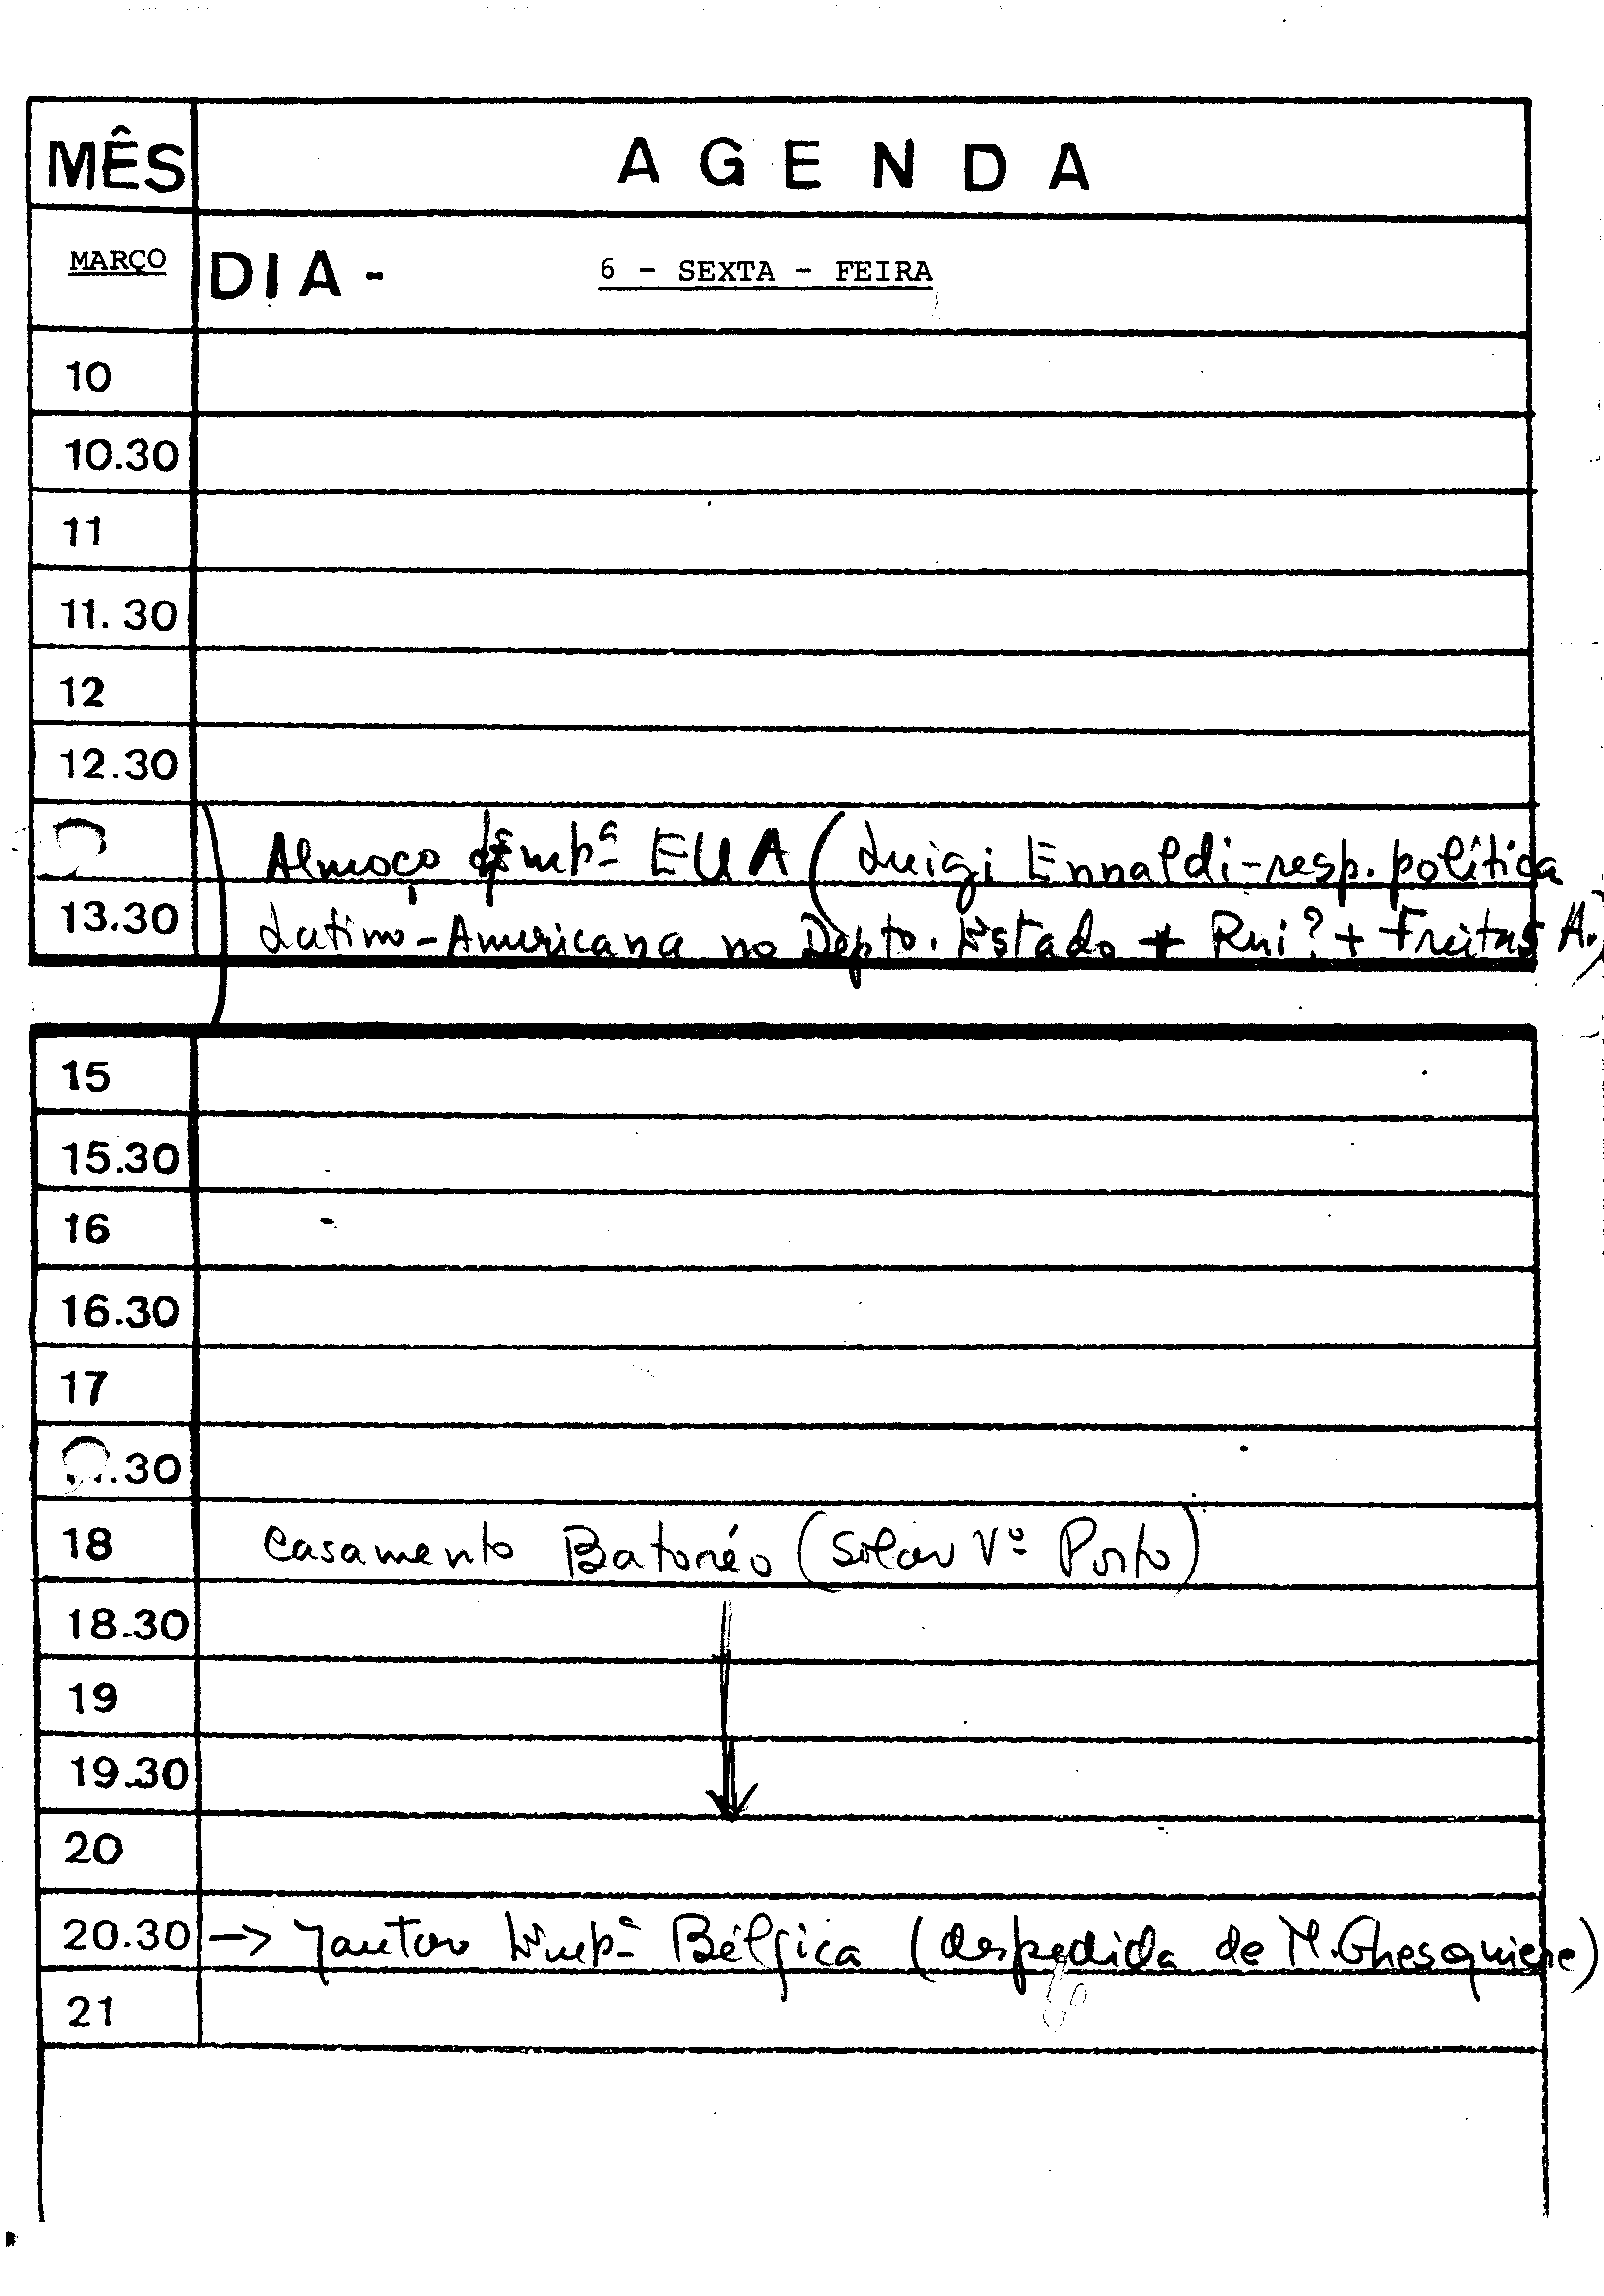 MÊS AGENDA
MARÇO DIA - 6 - SEXTA - FEIRA
10
10.30
11
11.30
12
12.30
Almoço Embª EUA (Luigi Ennaldi - resp. política
13.30 Latino-Americana no Depto. Estado + Rui? + Freitas A.)
15
15.30
16
16.30
17
.30
18 Casamento Batoréo (Solar Vº Porto)
18.30
19
19.30
20
20.30 → Jantar Embª Bélgica (despedida de M. Ghesquiere)
21